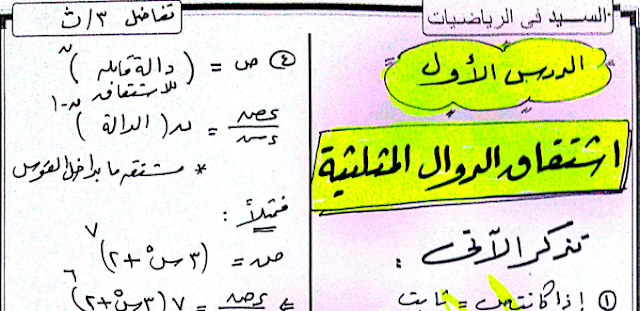 السيد فى الرياضيات
تفاضل ٣/ث
الدرس الأول
اشتقاق الدوال المثلثية
تذكر الآتى :
① إذا كانت ص = ثابت
④ ص = (دالة قابلة للاشتقاق)ⁿ
ءص/ءس = ن(الدالة)ن-١
* مشتقة ما بداخل القوس
فمثلاً :
ص = (٣س٥+٢)٧
ءص/ءس = ٧(٣س٥+٢)٦